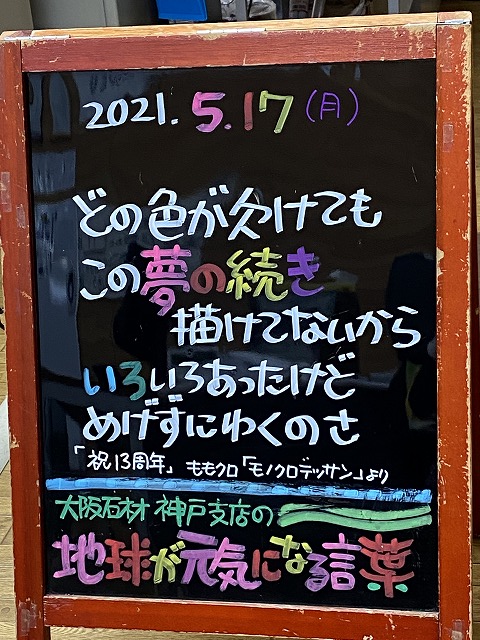 2021. 5.17(月)
どの色が欠けても
この夢の続き
描けてないから
いろいろあったけど
めげずにわくのさ
「祝13周年」 ももクロ「モノクロデッサン」より
大阪石材 神戸支店の
地球が元気になる言葉